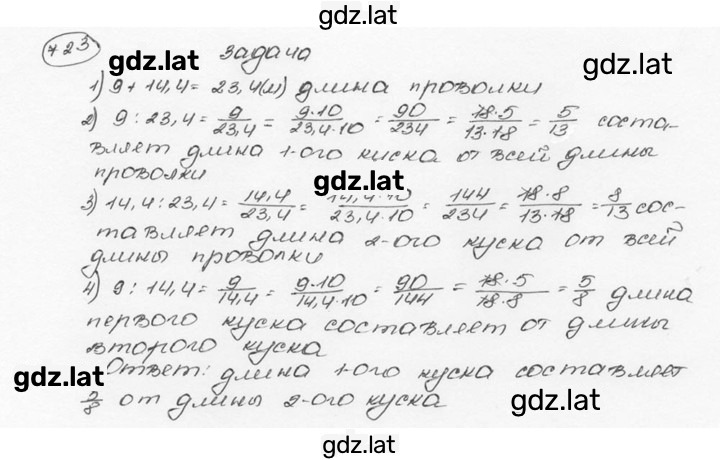 gdz.lat
723
gdz.lat задача gdz.lat
1) 9 + 14,4 = 23,4(м) длина проволки
2) 9 : 23,4 = 9/23,4 = 9·10/23,4·10 = 90/234 = 18·5/13·18 = 5/13 соста-
вляет длина 1-ого куска от всей длины
проволки
gdz.lat
3) 14,4 : 23,4 = 14,4/23,4 = 14,4·10/23,4·10 = 144/234 = 18·8/13·18 = 8/13 сос-
тавляет длина 2-ого куска от всей
длины проволки
4) 9 : 14,4 = 9/14,4 = 9·10/14,4·10 = 90/144 = 18·5/18·8 = 5/8 длина
первого куска составляет от длины
второго куска
gdz.lat Ответ: длина 1-ого куска составляет
от длины 2-ого куска gdz.lat
gdz.lat